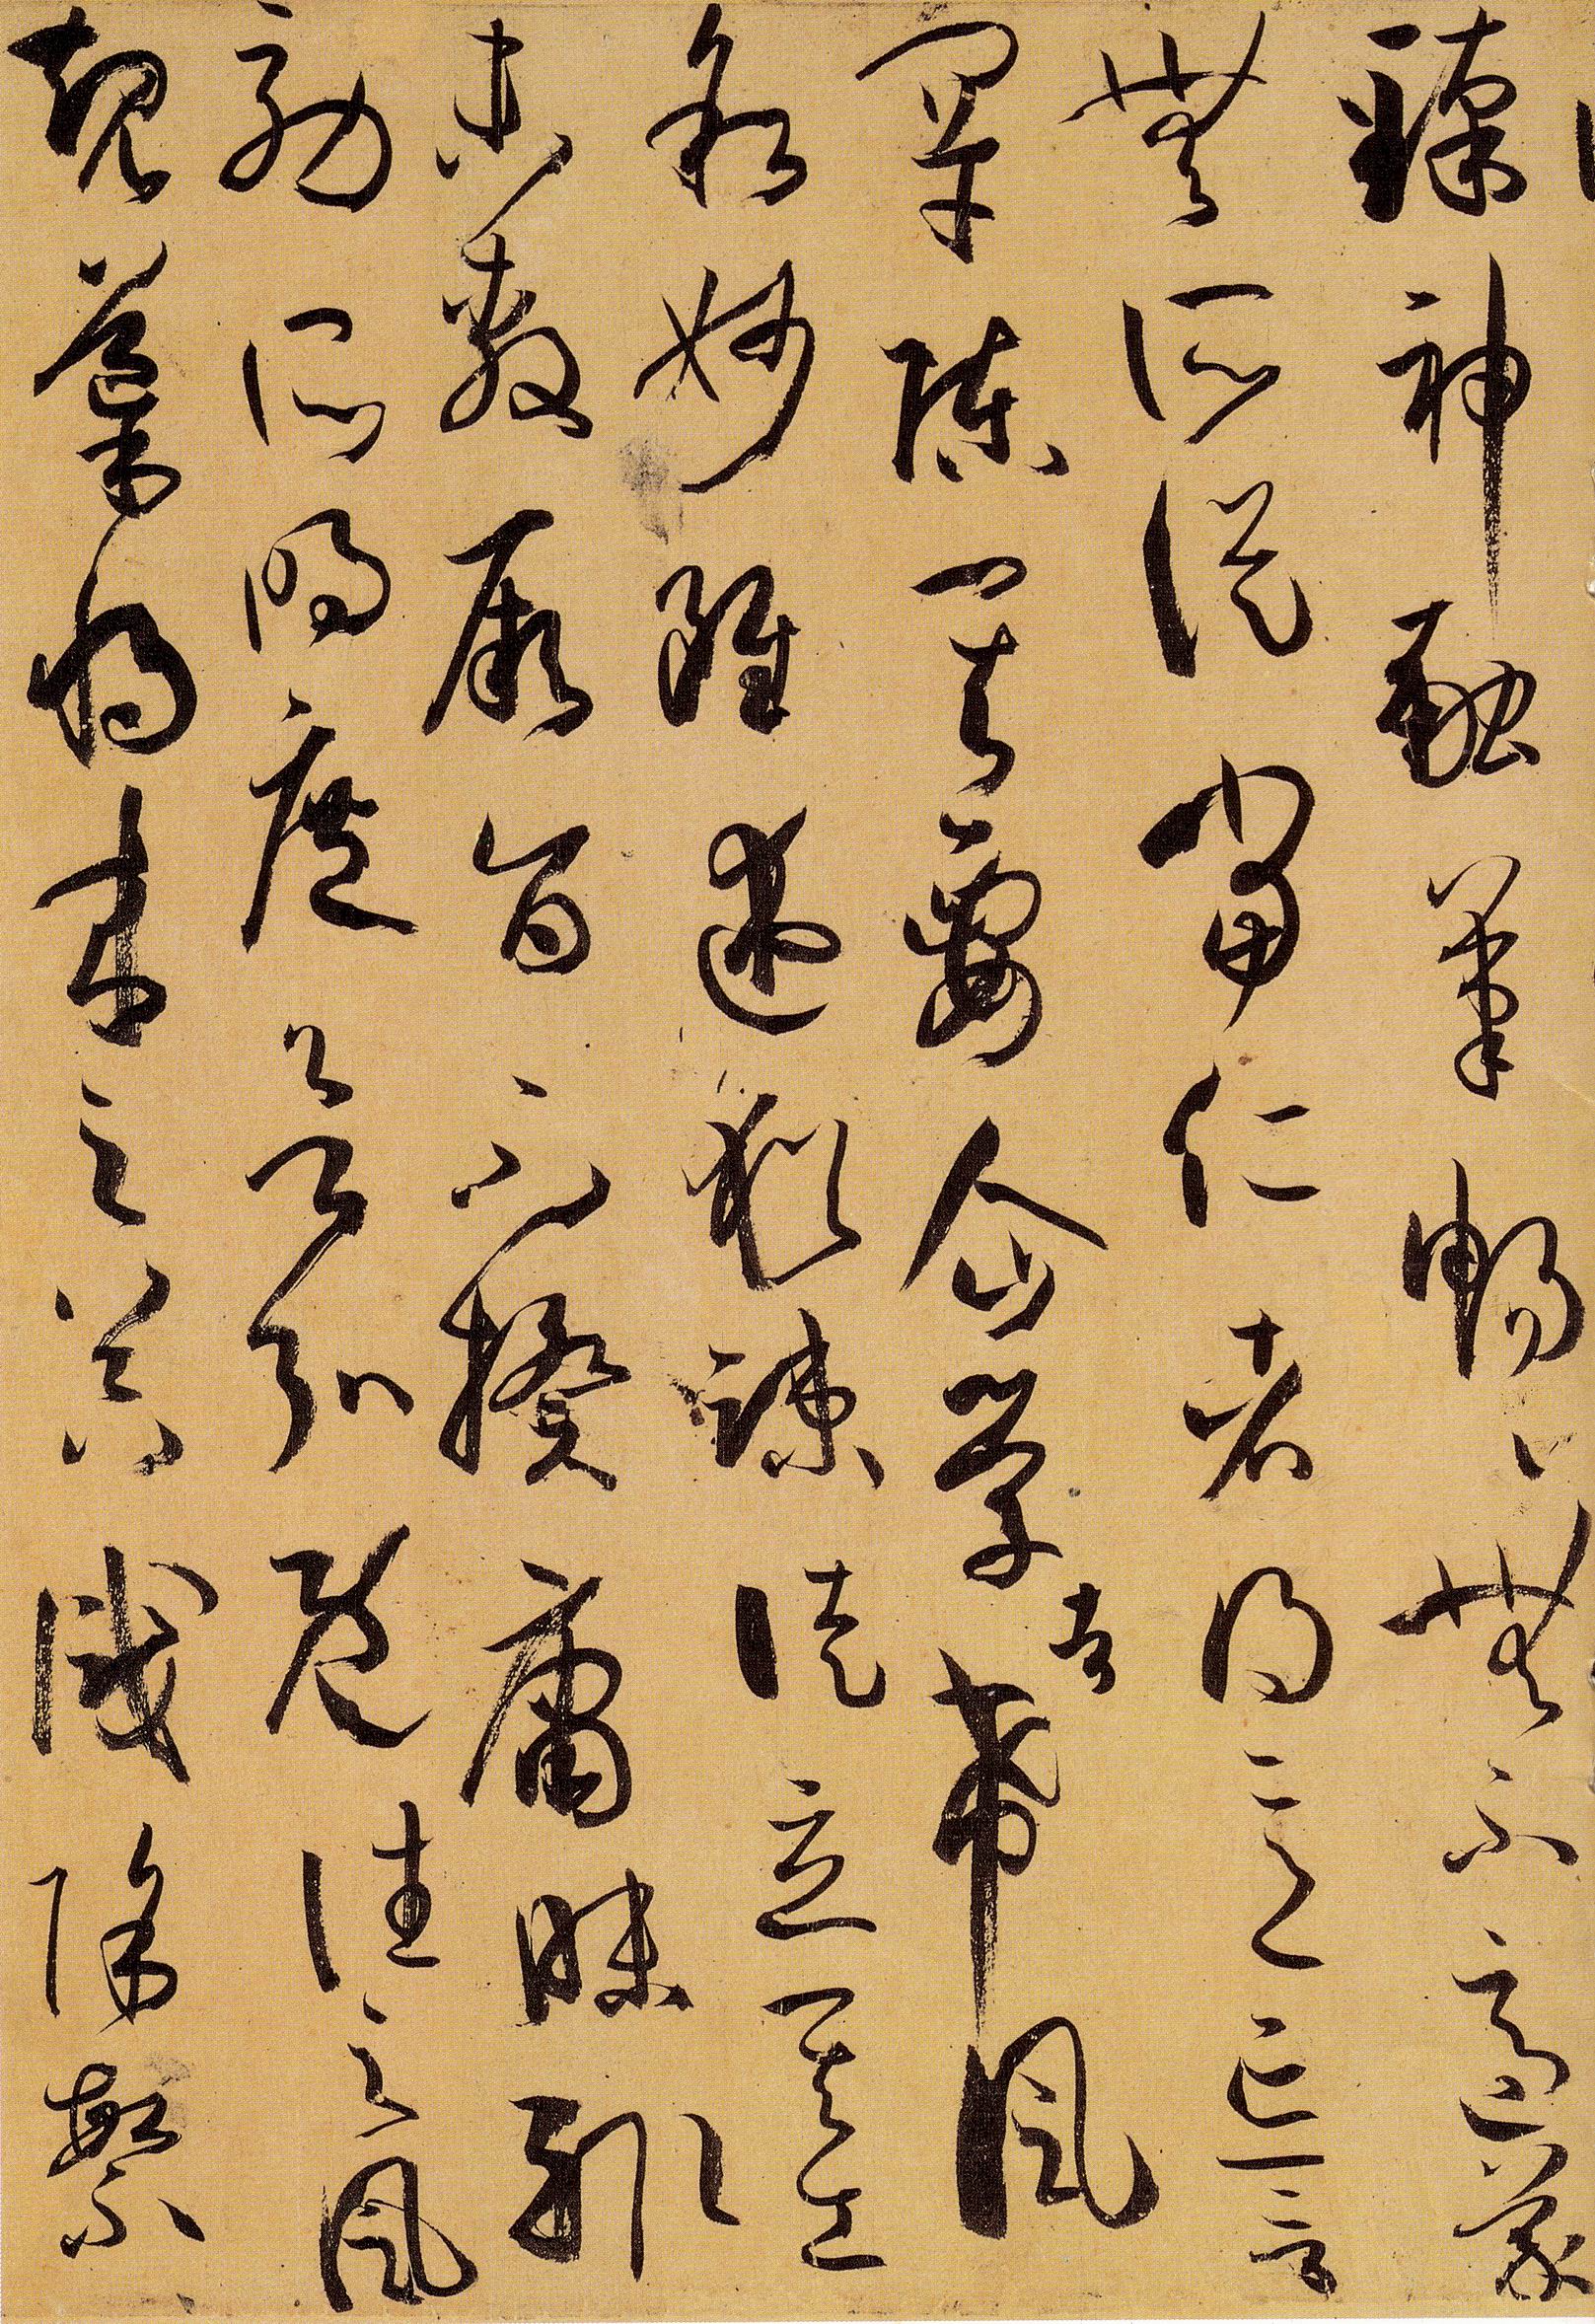 臻神融筆暢暢無不適蒙
無所從當仁者得意忘言
罕陳其要企學者希風
敘妙雖述猶疎徒立其工
未敷厥旨不揆庸昧輒
效所明庶欲弘既往之風
規導將來之器識除繁